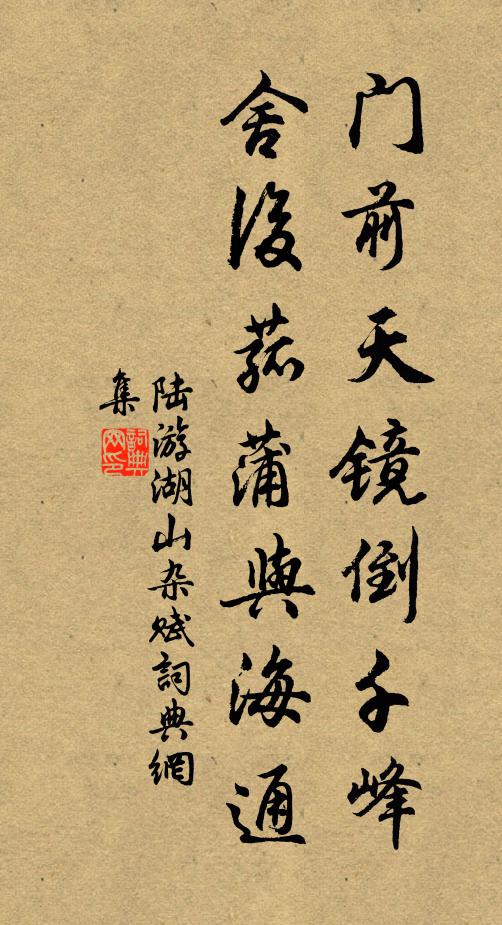 门前天镜倒千峰
舍後菰蒲與海通
陆游湖山杂赋詞典網
集
詞典网印